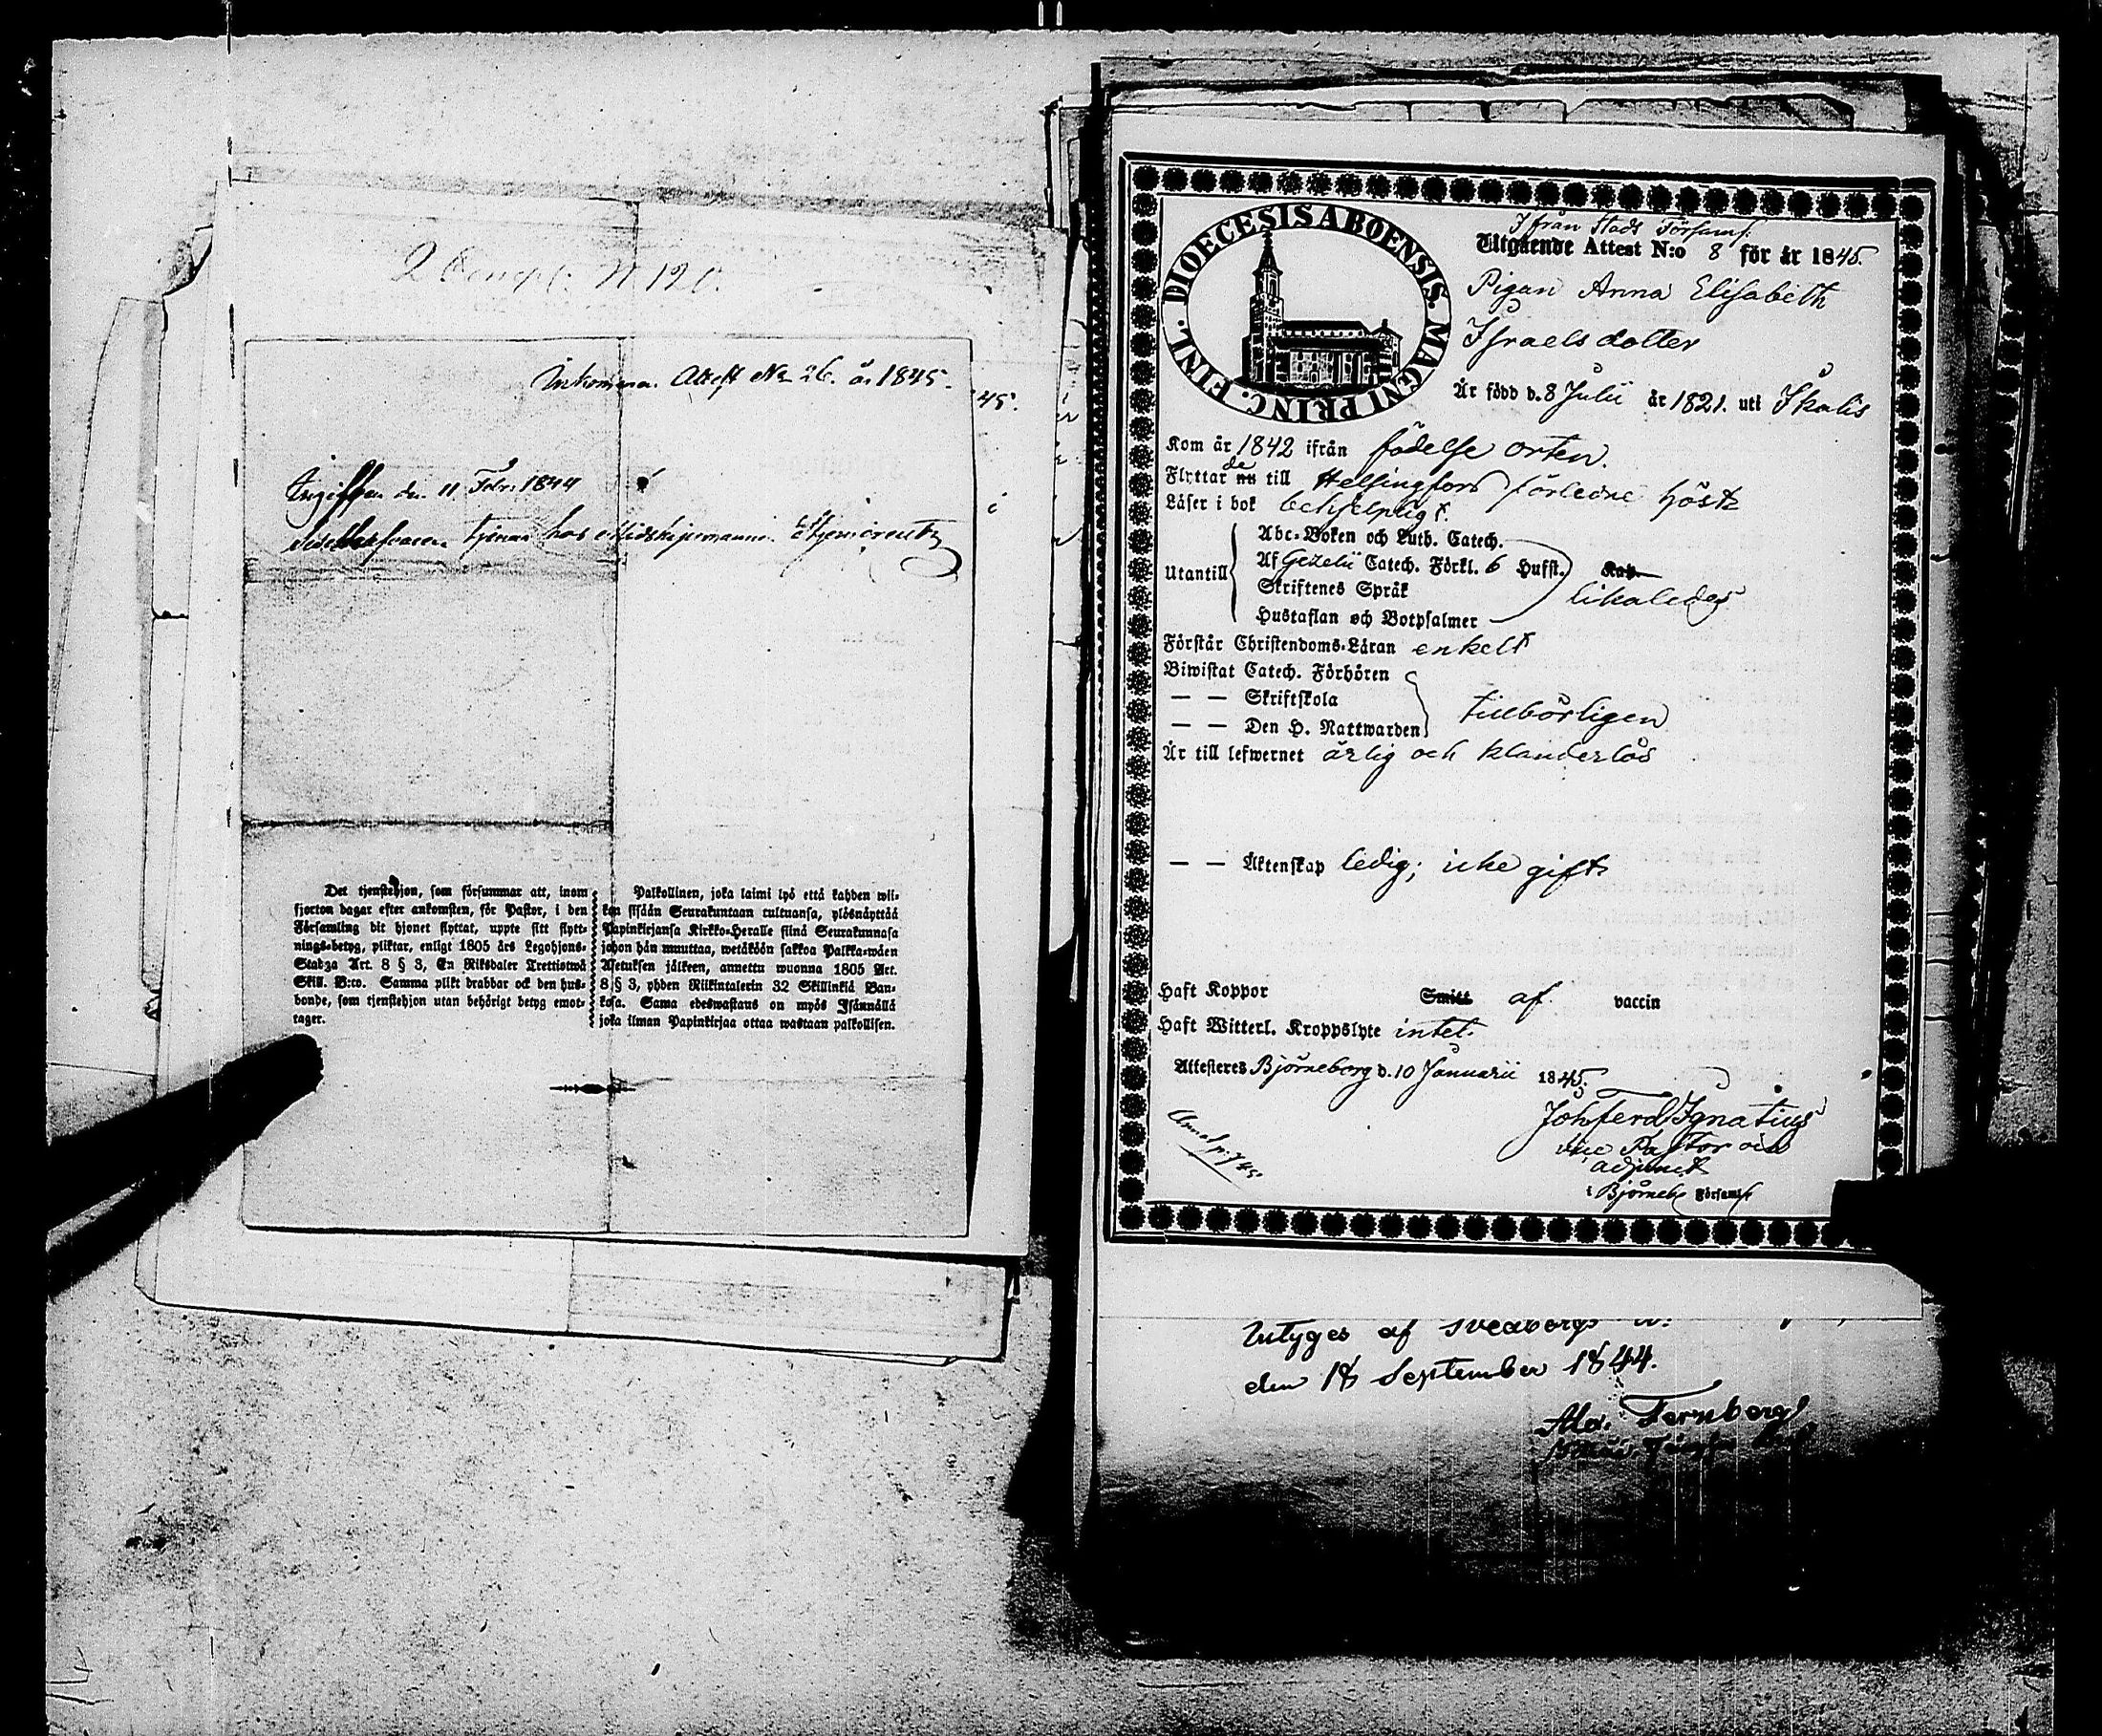 Inkommen Attest No 26. år 1845.
den 11 Febr. 1844
tjenar hos
Det tjenstehjon, som försummar att, inom
fjorton dagar efter ankomsten, för Pastor, i den
Församling dit hjonet flyttat, uppte sitt flytt-
nings-betyg, pliktar, enligt 1805 års Legohjons-
Stadga Art. 8 § 3, En Riksdaler Trettiotwå
Skill. B:co. Samma plikt drabbar ock den hus-
bonde, som tjenstehjon utan behörigt betyg emot-
tager.
Palkollinen, joka laimi lyö että kahden wii-
kon sisään Seurakuntaan tultuansa, ylösnäyttää
Papinkirjansa Kirkko-Heralle siinä Seurakunnasa
johon hän muuttaa, wetäköön sakkoa Palkka-wäen
Asetuksen jälkeen, annettu wuonna 1805 Art.
8 § 3, yhden Riikintalerin 32 Skillinkiä Ban-
kosa. Sama edeswastaus on myös Isännällä
joka ilman Papinkirjaa ottaa wastaan palkollisen.
DIOECESIS ABOENSIS. MAGNI PRINC. FINL.
Ifrån Stads Församl.
Utgående Attest N:o 8 för år 1845.
Pigan Anna Elisabeth
Israelsdotter
Är född d. 8 Julii år 1821. uti Ikalis
Kom år 1842 ifrån födelse orten.
Flyttade nu till Helsingfors förledne höst
Läser i bok behjelpligt.
Utantill
Abc-Boken och Luth. Catech.
Af Gezelii Catech. Förkl. 6 Hufst. Kap.
Skriftenes Språk
likaledes
Hustaflan och Botpsalmer
Förstår Christendoms-Läran enkelt
Biwistat Catech. Förhören
— — Skriftskola
tillbörligen
— — Den H. Nattwarden
Är till lefwernet ärlig och klanderlös
— — Äktenskap ledig; icke gift
Haft Koppor Smitt af vaccin
Haft Witterl. Kroppslyte intet.
Attesteras Björneborg d. 10 Januarii 1845.
Joh Ferd Ignatius
vice Pastor och
adjunct
i Björneb Församl
Intyges af Sveaborgs
den 18 September 1844.
Fernberg